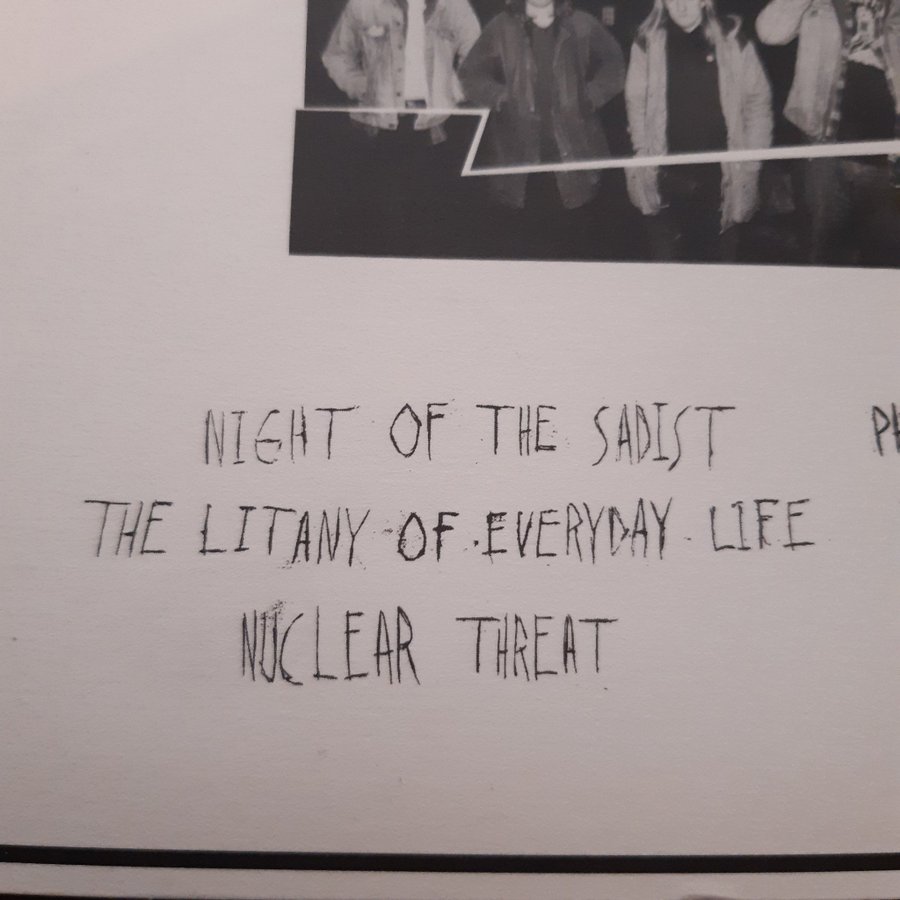 NIGHT OF THE SADIST
THE LITANY OF EVERYDAY LIFE
NUCLEAR THREAT